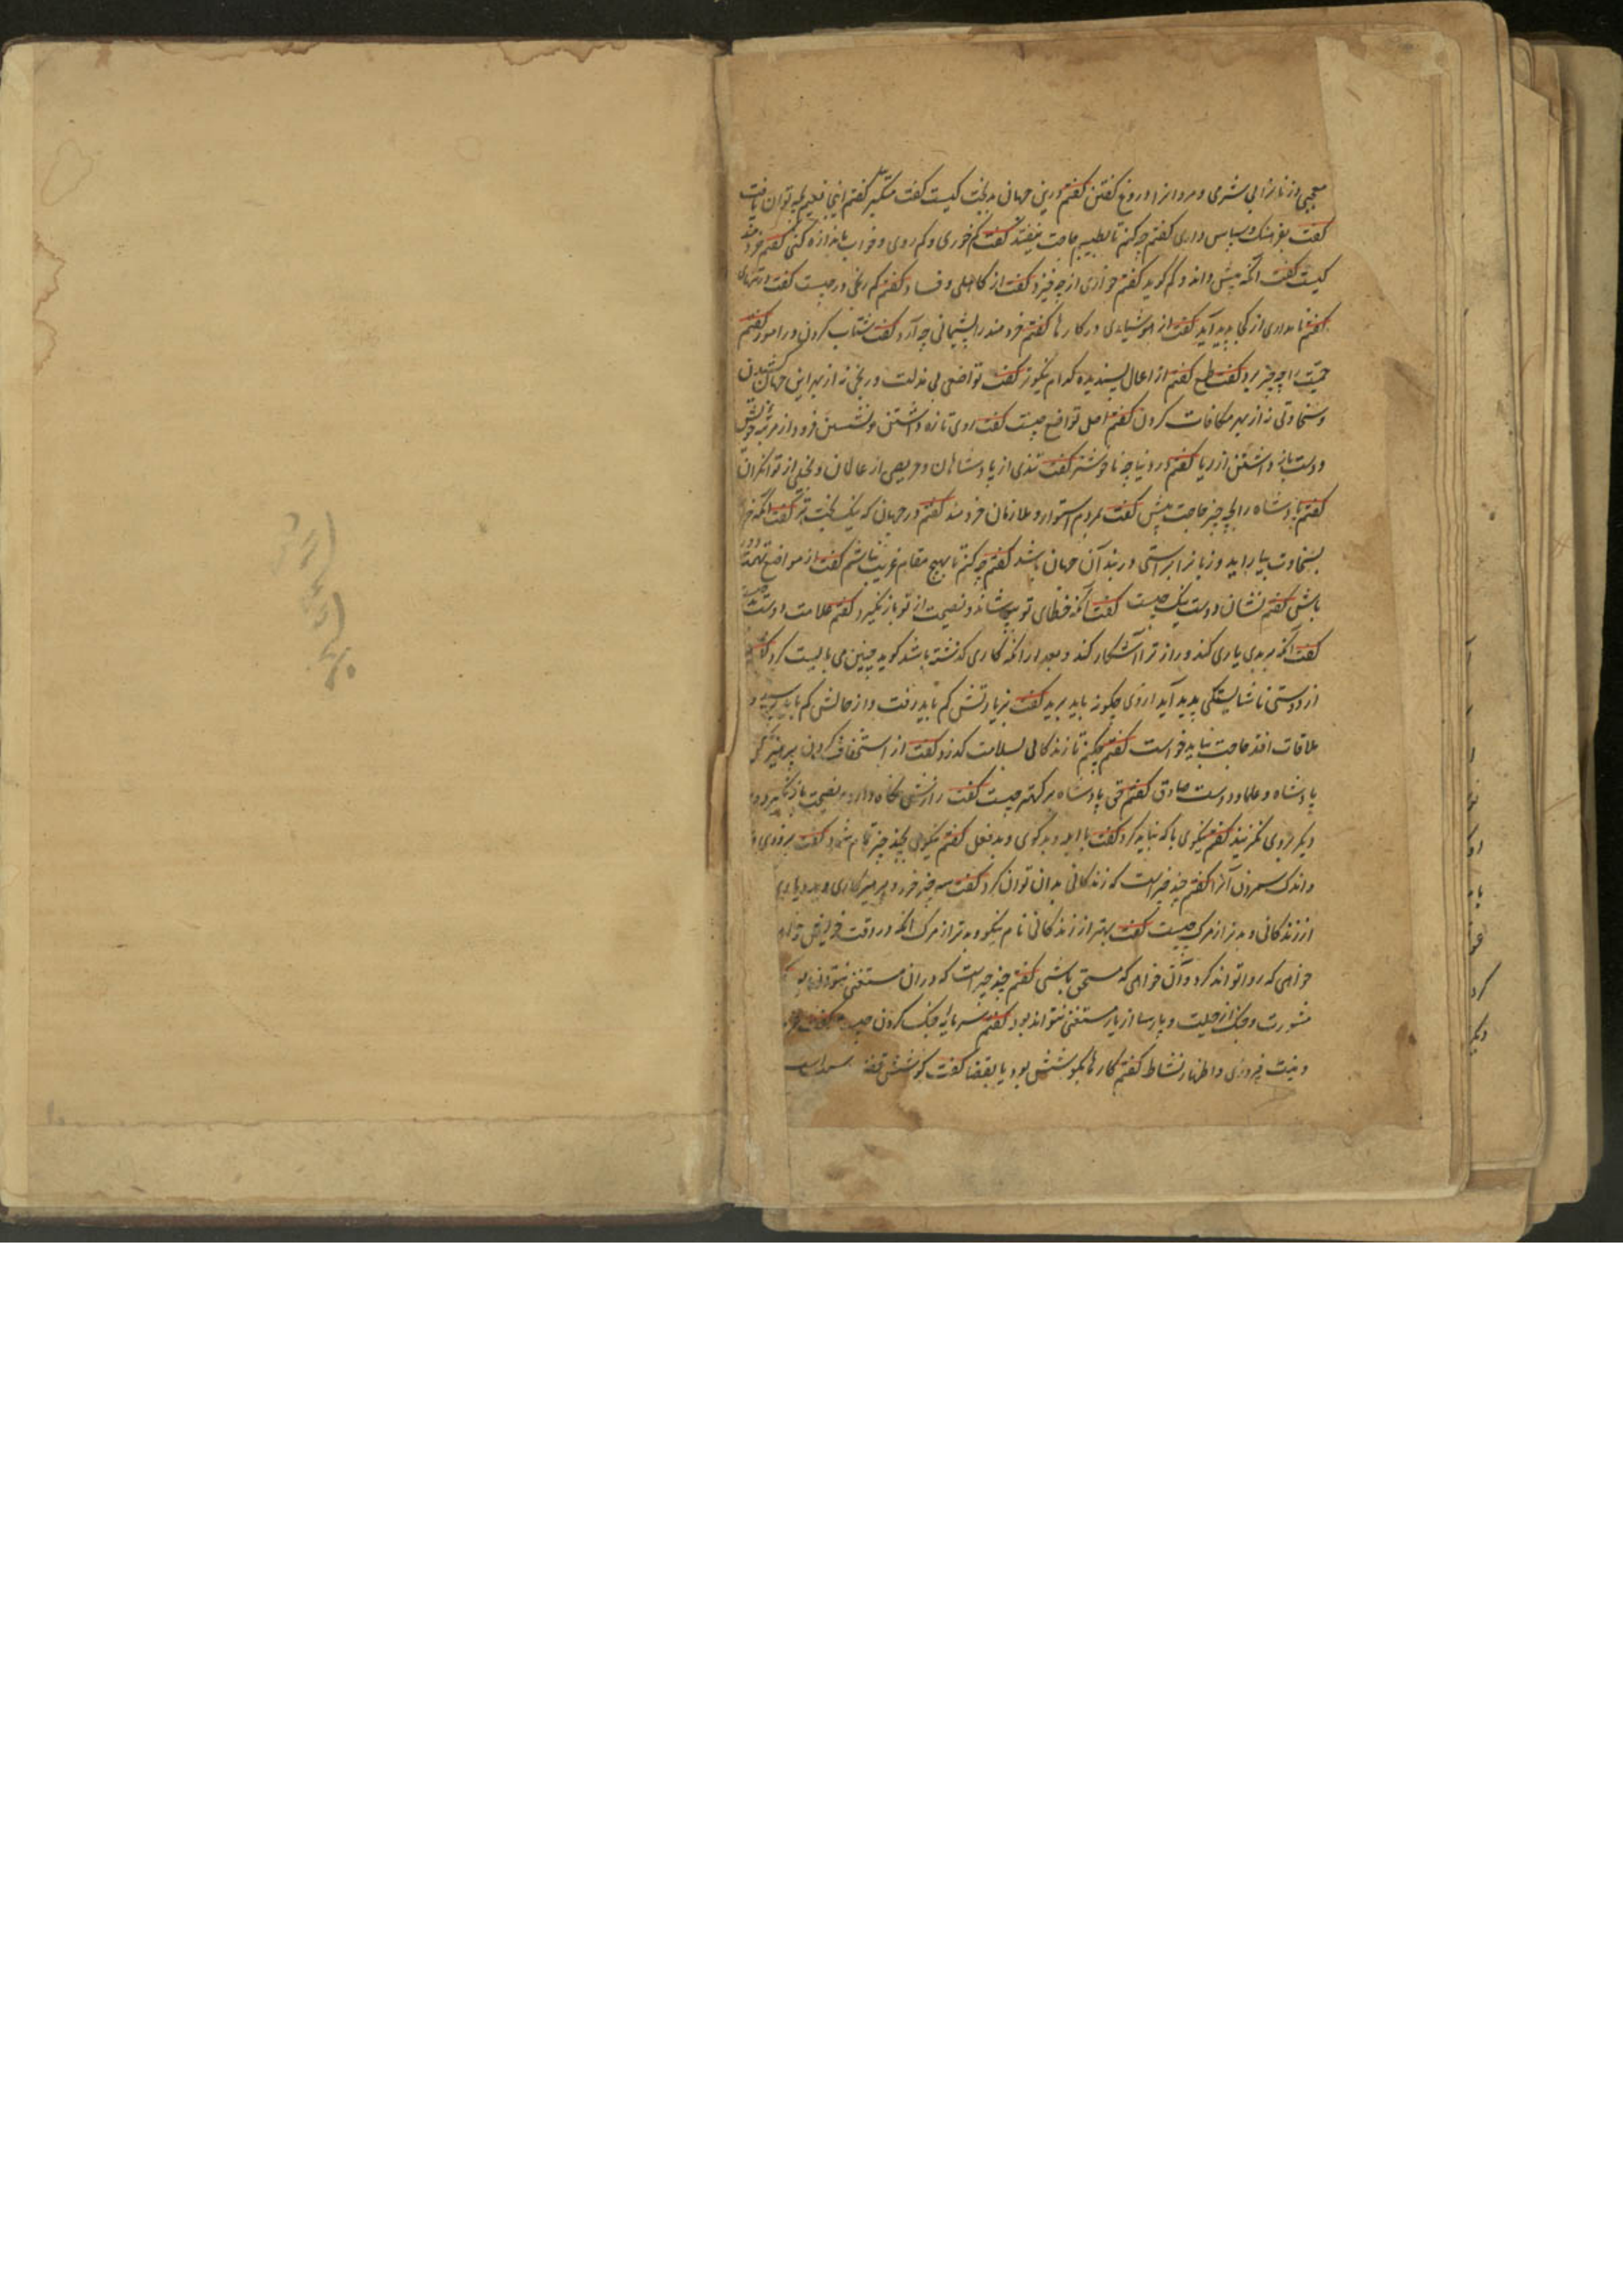 معجبی و زنانرا بی شرمی و مردانرا دروغ گفتن گفتم درین جهان بدبخت کیست گفت متکبر گفتم این نعیم بچه توان یافت
گفت بفرهنگ و سپاس داری گفتم چکنم تا بطبیبم حاجت نیفتد گفت کم خوری و کم روی و خواب باندازه کنی گفتم خردمند
کیست گفت آنکه بیش داند و کم گوید گفتم خواری از چه خیزد گفت از کاهلی و فساد گفتم کم رنجی در چیست گفت در تنهائی
گفتم نامداری از کجا پدید آید گفت از هوشیاری در کارها گفتم خردمند را پشیمانی چه آرد گفت شتاب کردن در امور گفتم
حمیت را چه چیز برد گفت طمع گفتم از اعمال پسندیده کدام نیکوتر گفت تواضعی بی مذلت و رنجی نه از بهر این جهان کشیدن
و سخاوتی نه از بهر مکافات کردن گفتم اصل تواضع چیست گفت روی تازه داشتن و نشستن فرود از مرتبه خویش
و دست باز داشتن از ریا گفتم در دنیا چه ناخوشتر گفت تندی از پادشاهان و حریصی از عالمان و بخل از توانگران
گفتم پادشاه را بچه چیز حاجت بیش گفت بمردم استوار و ملازمان خردمند گفتم در جهان که نیک بخت تر گفت آنکه خرد
بسخاوت بیاراید و زبانرا براستی و در بند آن جهان باشد گفتم چه کنم تا بهیچ مقام غریب نباشم گفت از مواضع تهمت دور
باش گفتم نشان دوست نیک چیست گفت آنکه خطای تو بپوشاند و نصیحت از تو باز نگیرد گفتم علامت دوست بد چیست
گفت آنکه ببدی یاری کند و راز ترا آشکار کند و بعد از آنکه کاری گذشته باشد گوید چنین می بایست کرد گفتم
از دوستی ناشایستگی پدید آید از وی چگونه باید برید گفت بزیارتش کم باید رفت و از حالش کم باید پرسید و
ملاقات افتد حاجت نباید خواست گفتم چکنم تا زندگانی بسلامت گذرد گفت از استخفاف کردن بپرهیز
پادشاه و علما و دوست صادق گفتم حق پادشاه بر کهتر چیست گفت رازش نگاه دارد و نصیحت باز نگیرد و
دیگر بروی نگزیند گفتم نیکوی با که نباید کرد گفت با ابله و بدگوی و بدفعل گفتم نیکوی بچند چیز تمام شود گفت بزودی
و اندک شمردن آنرا گفتم چند چیزست که زندگانی بدان توان کرد گفت سه چیز خرد و پرهیزگاری و بردباری
از زندگانی و بدتر از مرگ چیست گفت بهتر از زندگانی نام نیکو و بدتر از مرگ آنکه در وقت
خواهی که روا تواند کرد و آن خواهی که مستحق باشی گفتم چند چیزست که در آن مستغنی نتوان بود
مشورت و جنگ از حیلت و پارسا از یار مستغنی نتواند بود گفتم سرمایه جنگ کردن چیست گفت
و نیت فیروزی و اظهار نشاط گفتم کارها بکوشش بود یا بقضا گفت کوشش قضا را